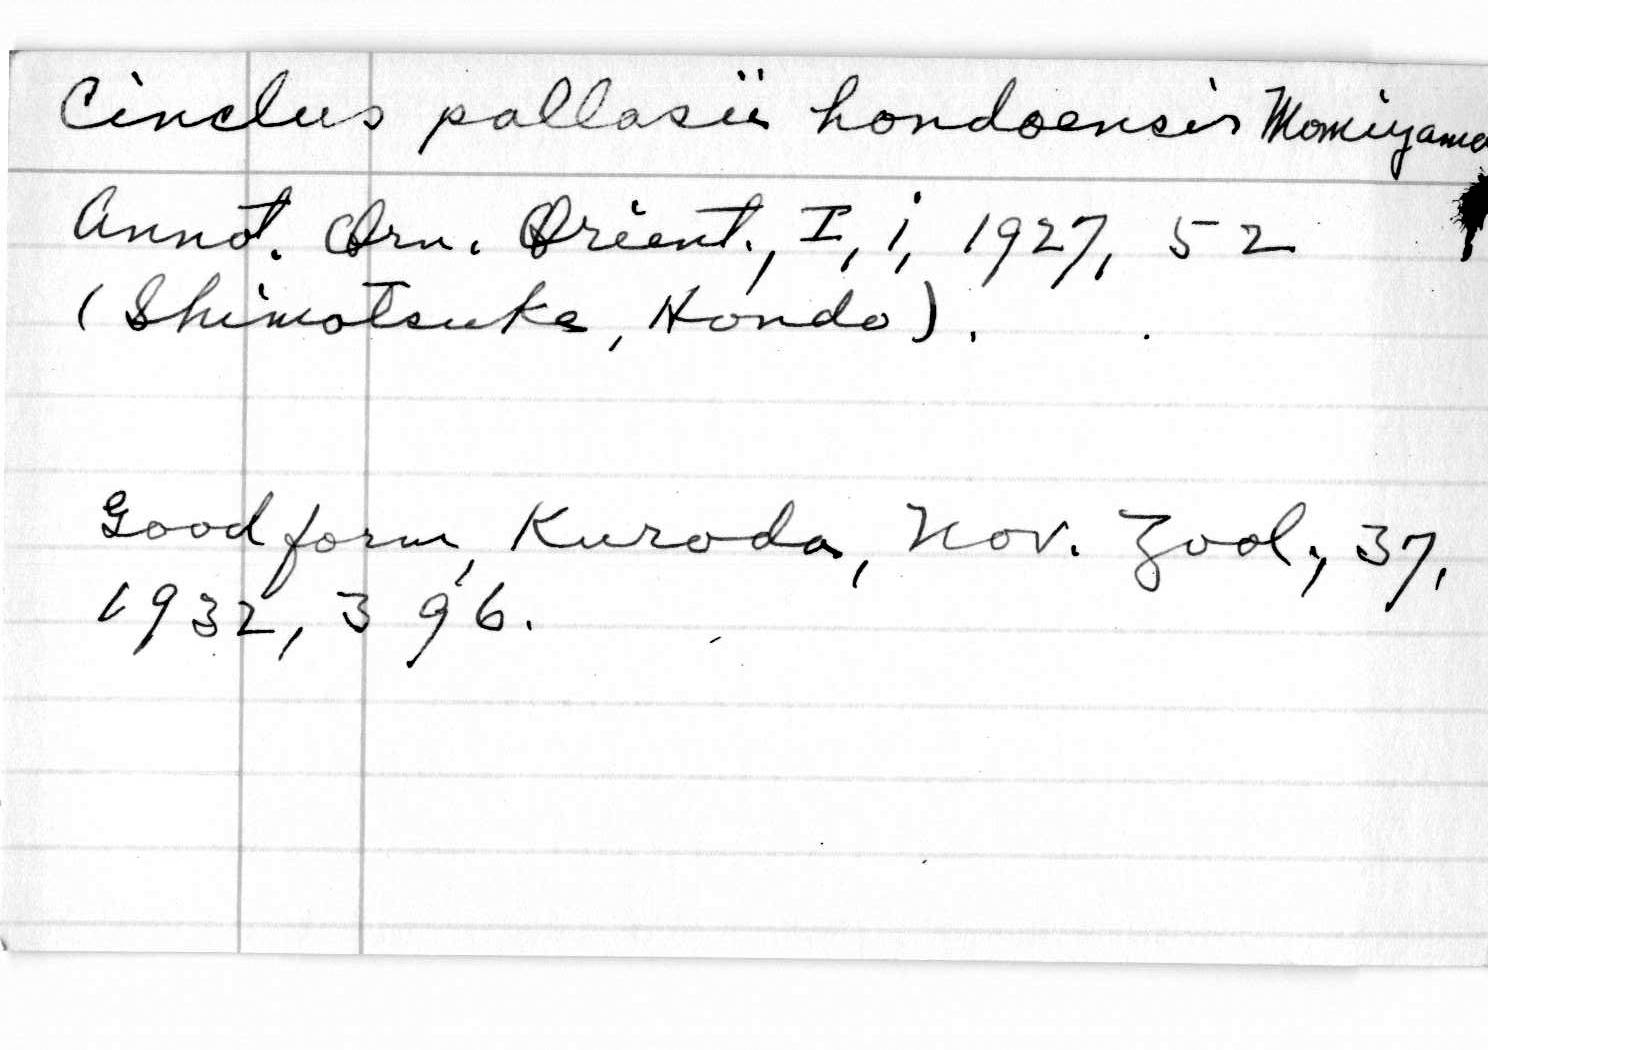 Cinclus pallasii hondoensis Momiyama
Annot. Orn. Orient., I, i, 1927, 52
(Shimotsuke, Hondo).
Good form, Kuroda, Nov. Zool., 37,
1932, 396.